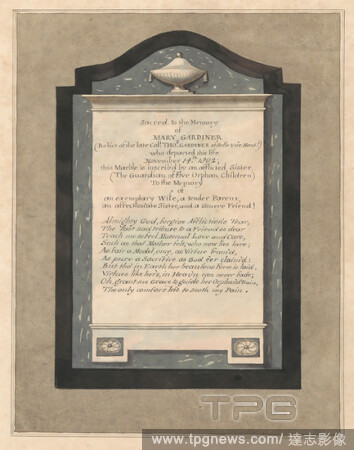 Sacred to the Memory
of
MARY GARDINER
(Relict of the late Col! THO! GARDINER of
who departed this life
November 14th
this Marble is inscribed by an afflicted Sister
(The Guardian of Five Orphan Children)
To the Memory
of
an exemplary Wife, a tender Parent,
an affectionate Sister, and a sincere Friend!
Almighty God, forgive Affliction's Tear,
The last sad tribute to a Friend so dear
Teach me to feel Maternal Love and Care,
Such as that Mother felt, who now lies here;
As fair a Model, once, as Virtue fram'd,
As pure a Sacrifice as God e'er claim'd:
But tho' in Earth her beauteous Form is laid,
Virtues like hers, in Heav'n can never fade;
Oh, grant me Grace to guide her Orphan Train,
The only comfort left to sooth my Pain.
TPG
www.tpgnews.com / 達志影像